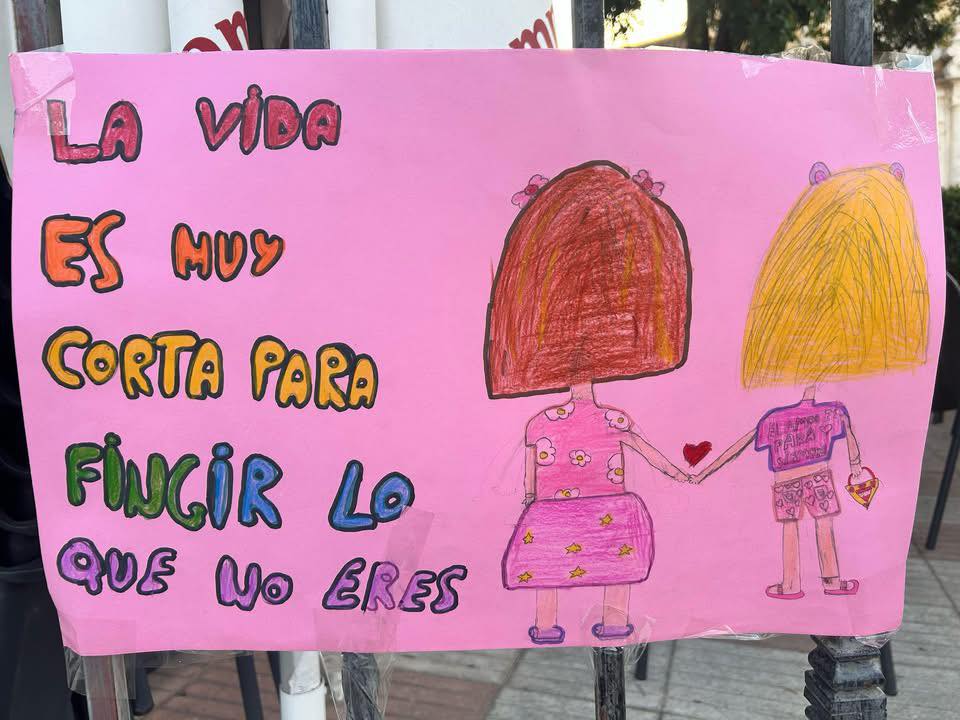 LA VIDA
ES MUY
CORTA PARA
FINGIR LO
QUE NO ERES
EL AMOR
PARA